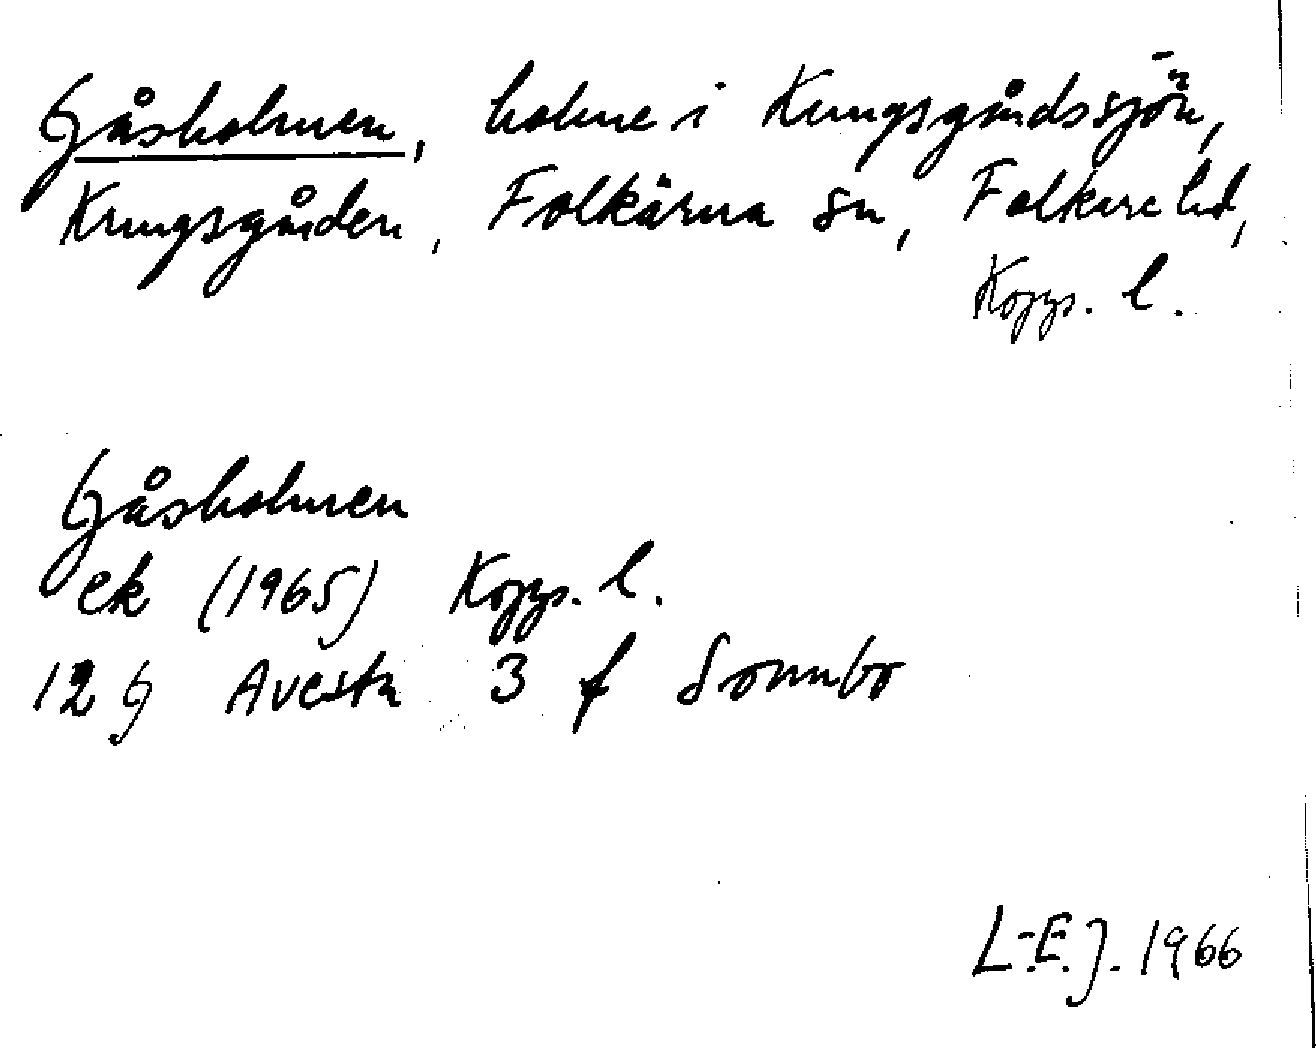 Gåsholmen, holme i Kungsgårdssjön,
Kungsgården, Folkärna sn, Folkare hd,
Kopps. l.
Gåsholmen
ek (1965) Kopps. l.
12 G Avesta 3 f Sonnbo
L-E.J. 1966